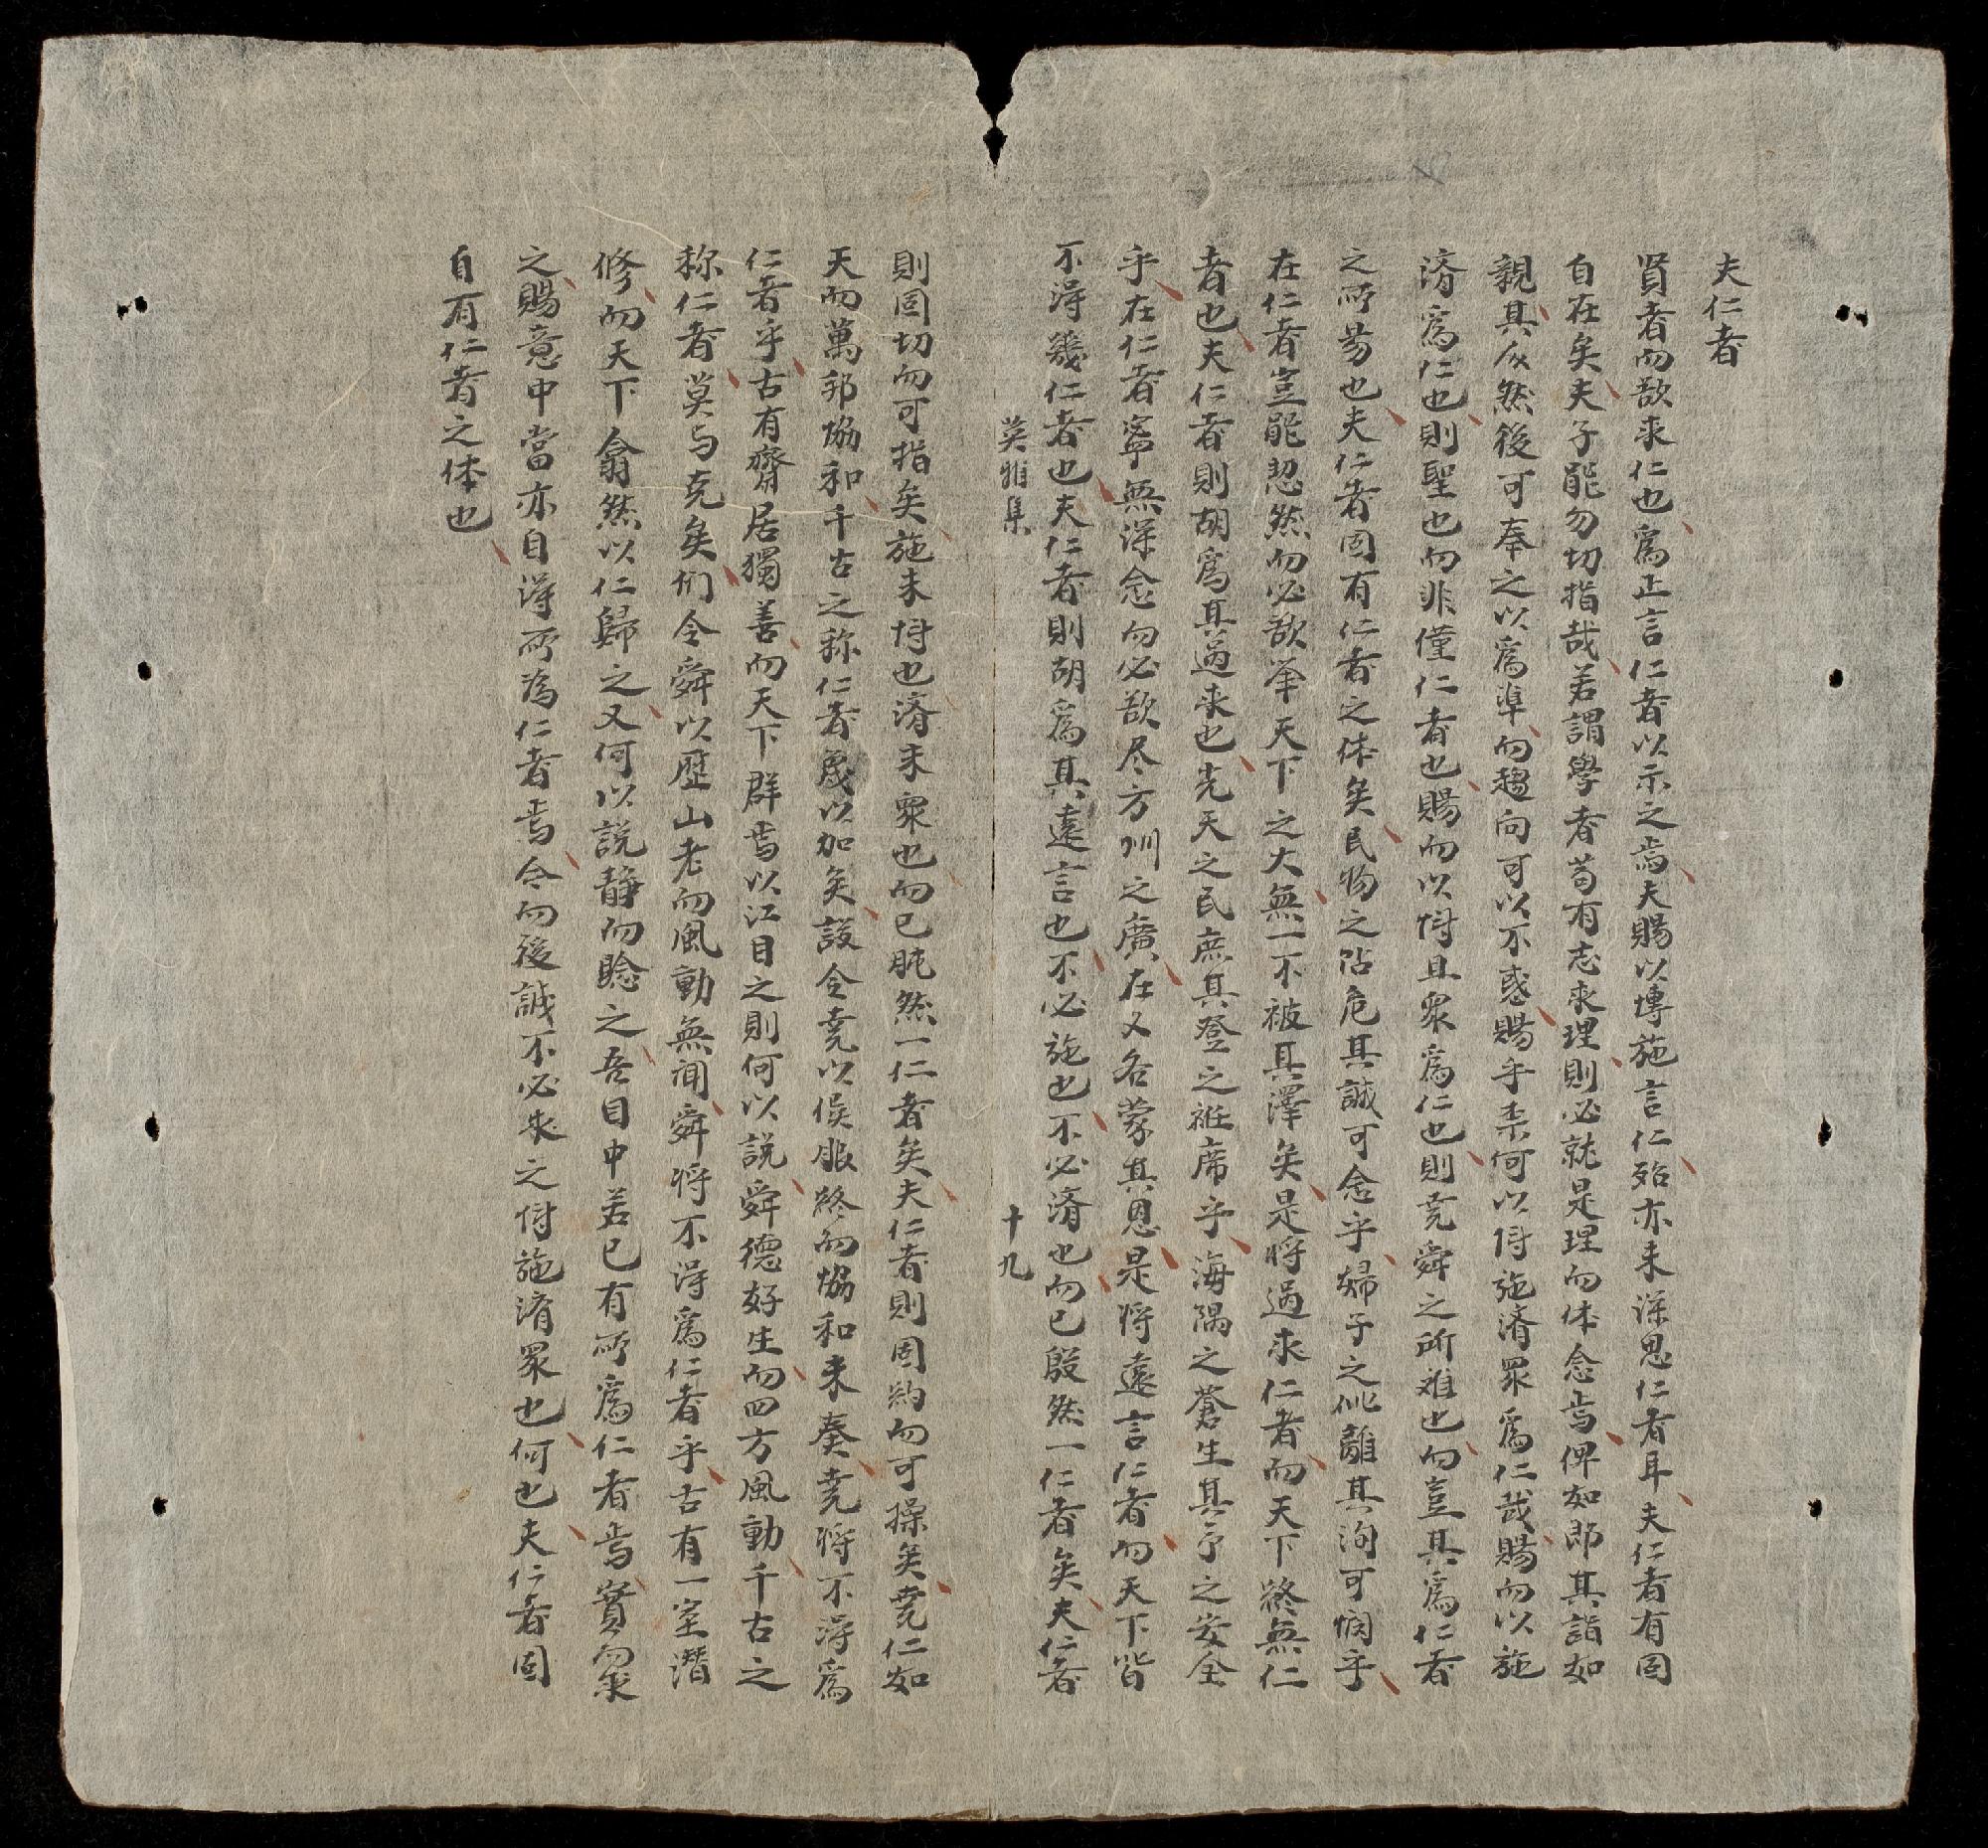 夫仁者
賢者而欲求仁也爲正言仁者以示之焉夫賜以博施言仁殆亦未深思仁者耳夫仁者有固
自在矣夫子能勿切指哉若謂學者苟有志求理則必就是理而体念焉俾如即其詣如
親其及然後可奉之以爲準而趨向可以不惑賜乎柰何以博施濟眾爲仁哉賜而以施
濟爲仁也則聖也而非僅仁者也賜而以博且眾爲仁也則堯舜之所难也而豈其爲仁者
之所昜也夫仁者固有仁者之体矣民物之阽危其誠可念乎婦子之仳離其洵可憫乎
在仁者豈能恝然而必欲举天下之大無一不被其澤矣是將過求仁者而天下終無仁
者也夫仁者則胡爲其過求也光天之民庶其登之袵席乎海隅之蒼生其予之安全
乎在仁者寧無深念而必欲尽方州之廣在又各蒙其恩是將遠言仁者而天下皆
不得幾仁者也夫仁者則胡爲其遠言也不必施也不必濟也而已殷然一仁者矣夫仁者
莫雅集 十九
則固切而可指矣施未博也濟未眾也而已肫然一仁者矣夫仁者則固約而可操矣堯仁如
天而萬邦協和千古之称仁者蔑以加矣設令堯以侯服終而協和未奏堯將不得爲
仁者乎古有齋居獨善而天下群焉以仁目之則何以説舜德好生而四方風動千古之
称仁者莫与克矣们令舜以歷山老而風動無闻舜將不得爲仁者乎古有一室潛
修而天下翕然以仁歸之又何以説静而騐之吾目中若已有所爲仁者焉實而求
之賜意中當亦自得所为仁者焉今而後誠不必求之博施濟眾也何也夫仁者固
自有仁者之体也